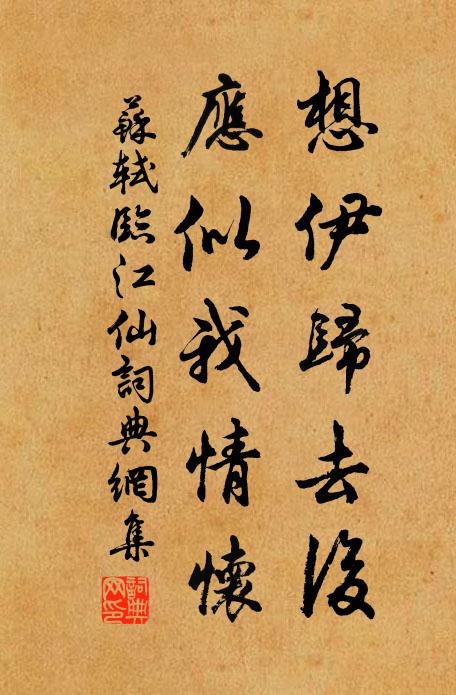 想伊歸去後
應似我情懷
蘇軾臨江仙詞典網集
詞典網印